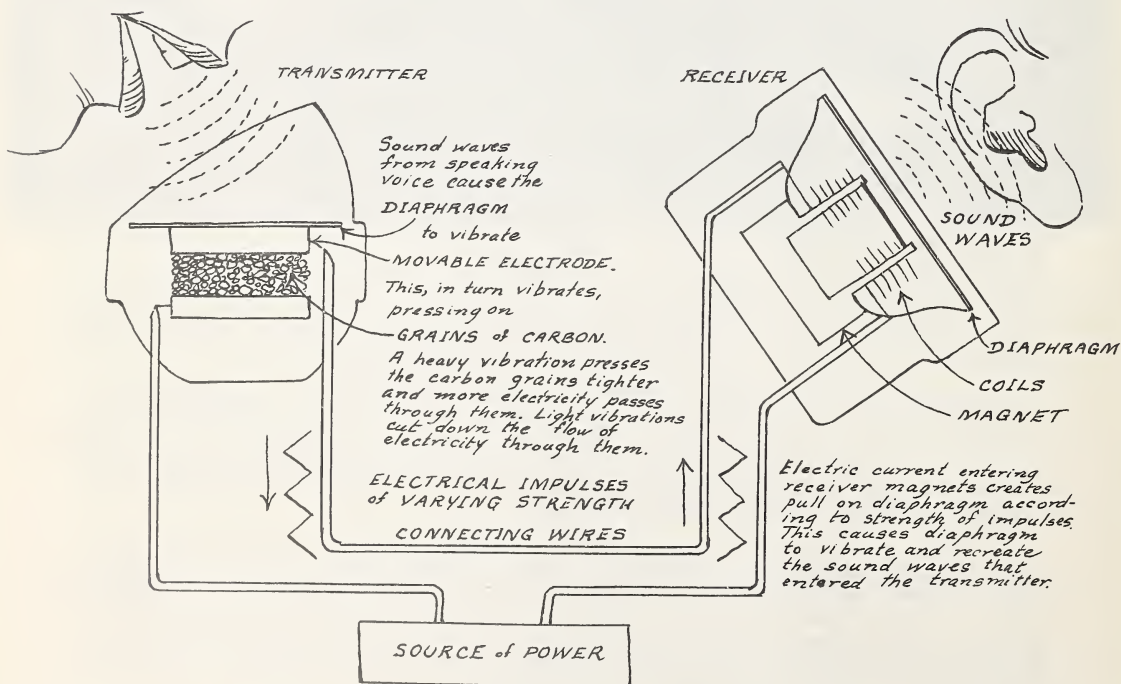 TRANSMITTER
Sound waves
from speaking
voice cause the
DIAPHRAGM
to vibrate
MOVABLE ELECTRODE.
This, in turn vibrates,
pressing on
GRAINS of CARBON.
A heavy vibration presses
the carbon grains tighter
and more electricity passes
through them. Light vibrations
cut down the flow of
electricity through them.
ELECTRICAL IMPULSES
of VARYING STRENGTH
CONNECTING WIRES
SOURCE of POWER
RECEIVER
SOUND
WAVES
DIAPHRAGM
COILS
MAGNET
Electric current entering
receiver magnets creates
pull on diaphragm accord-
ing to strength of impulses.
This causes diaphragm
to vibrate and recreate
the sound waves that
entered the transmitter.